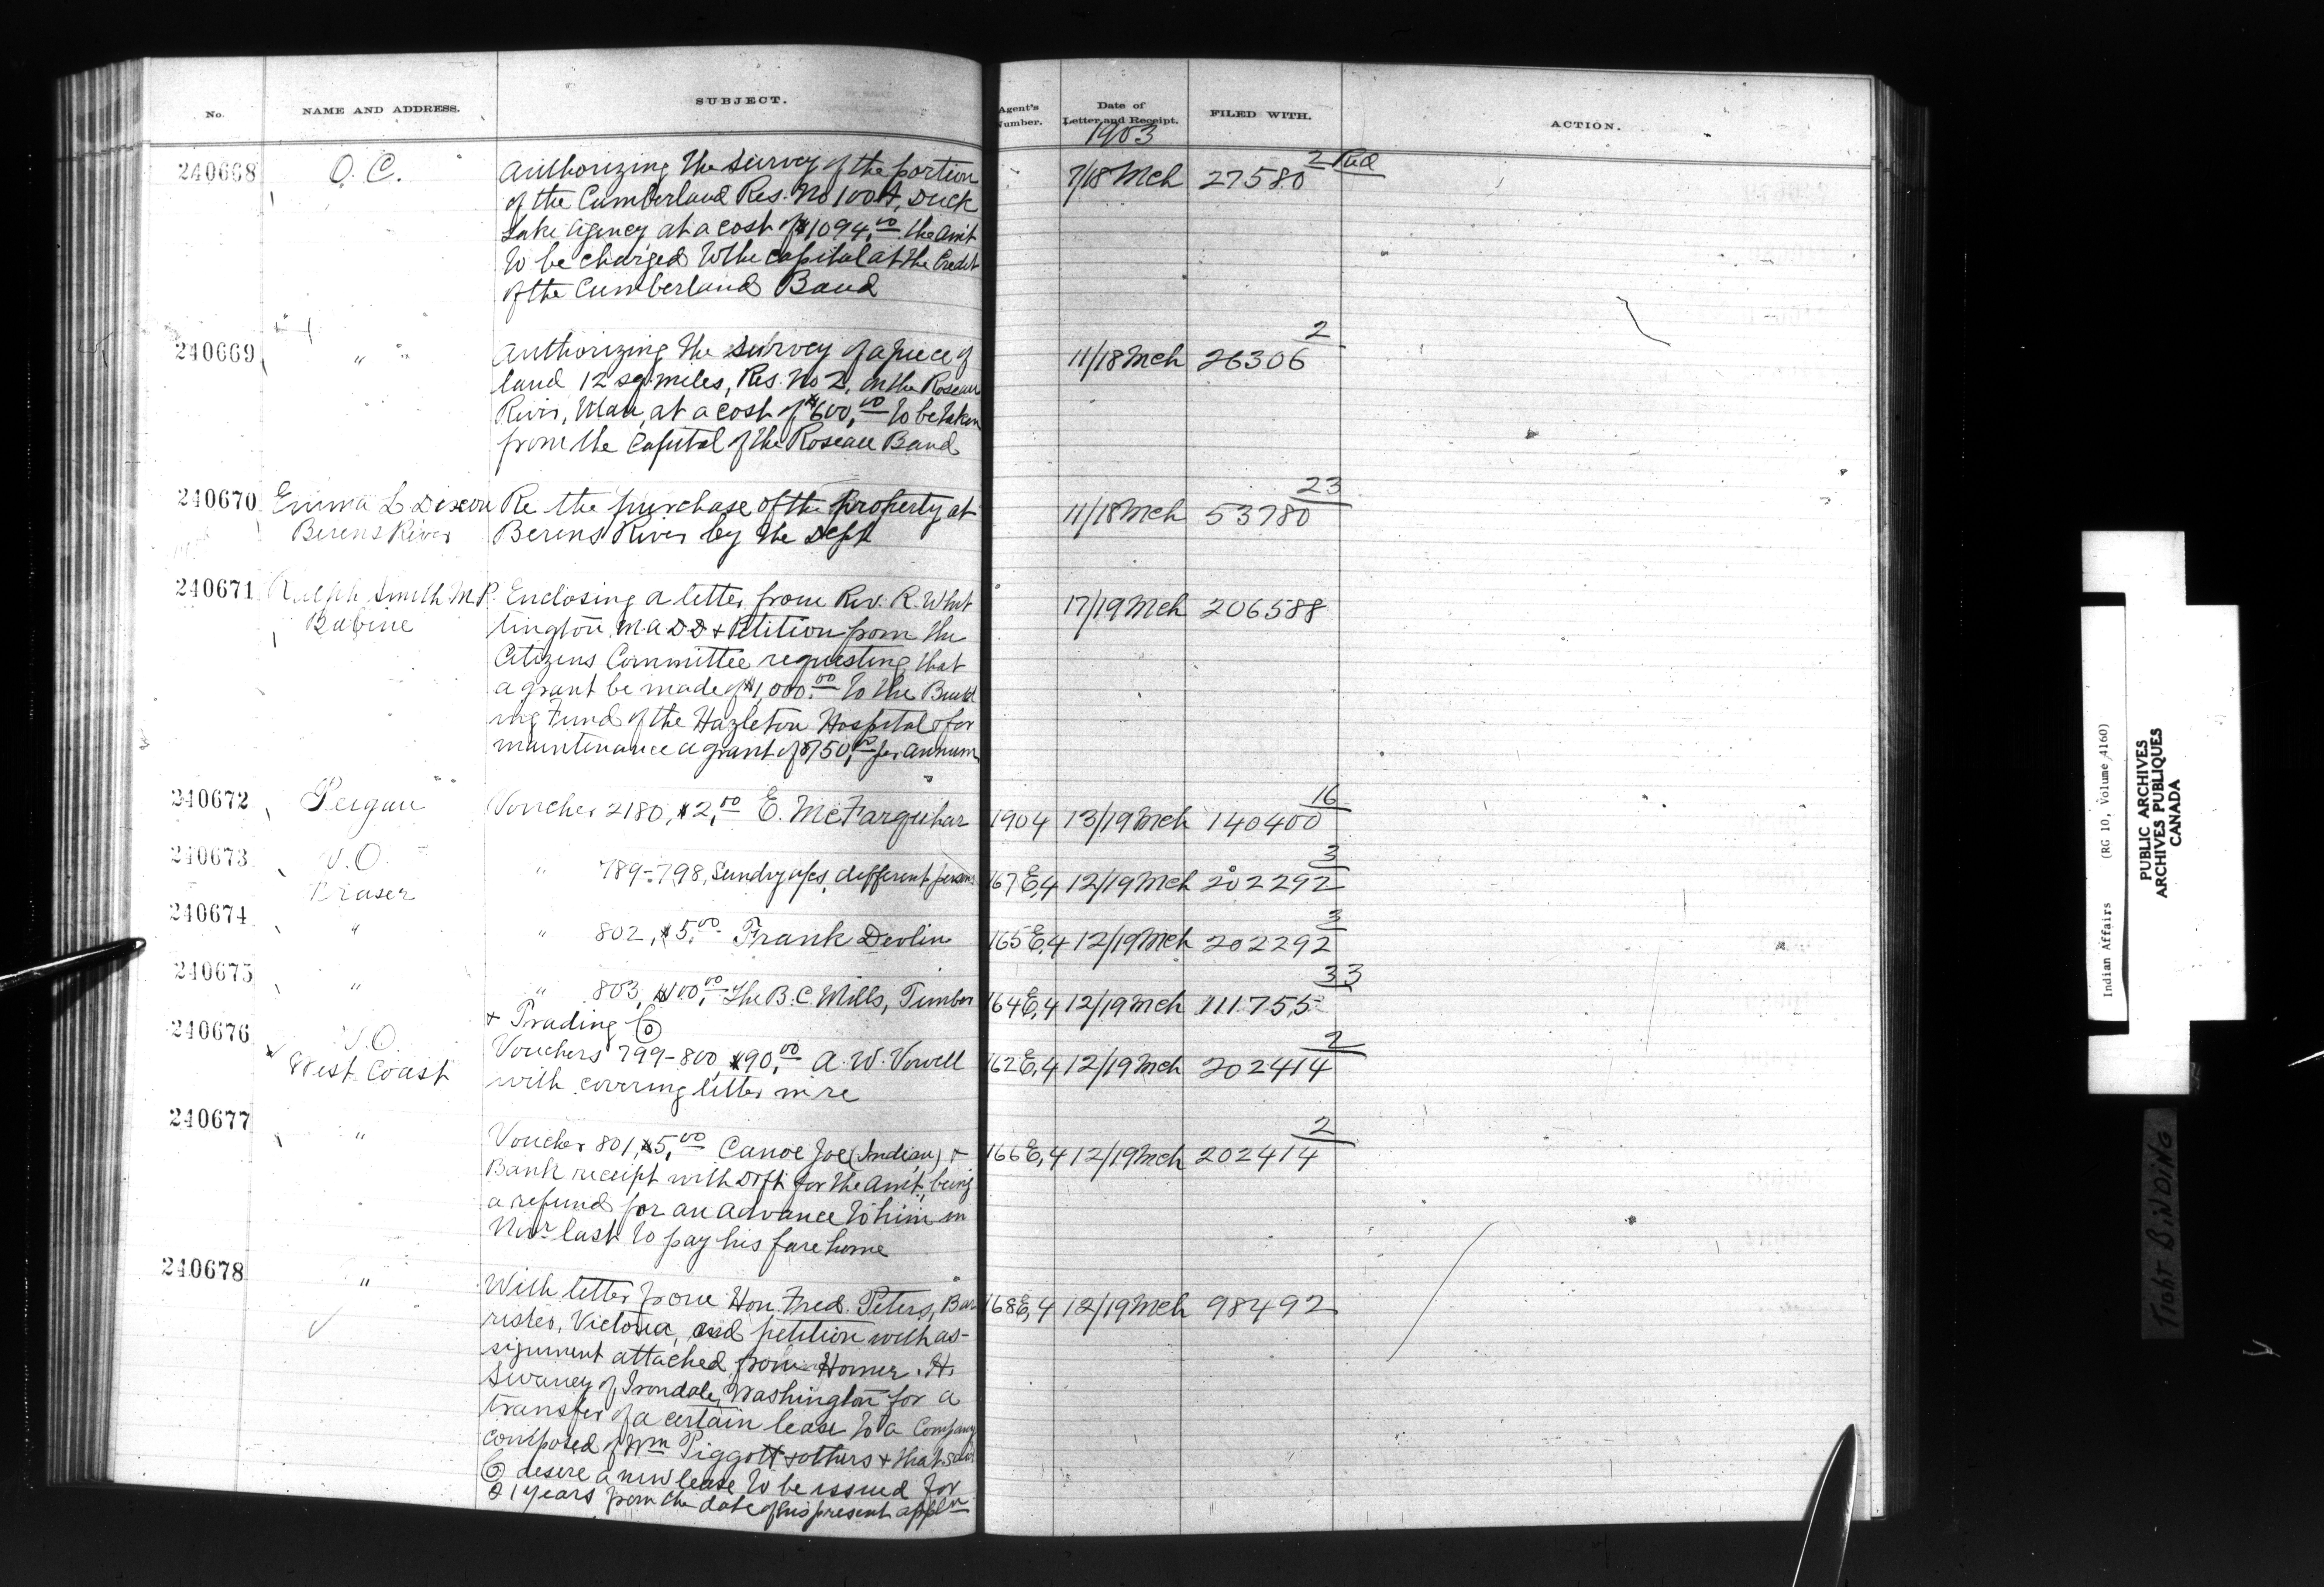 No. NAME AND ADDRESS. SUBJECT. Agent's Number. Date of Letter and Receipt. FILED WITH. ACTION.
1903
240668 O. C. Authorizing the survey of the portion 7/18 Mch 27580 2 Red
of the Cumberland Res. No 100A, Duck
Lake Agency at a cost of $1094.00 the amt
to be charged to the capital at the credit
of the Cumberland Band
240669 " " Authorizing the survey of a piece of 11/18 Mch 26306 2
land 12 sq. miles, Res. No 2, on the Roseau
River, Man, at a cost of $600.00 to be taken
from the Capital of the Roseau Band
240670 Emma L Dixon Re the purchase of the property at 11/18 Mch 53780 23
Berens River Berens River by the Dept
240671 Ralph Smith M.P. Enclosing a letter from Rev. R. Whit 17/19 Mch 206588
Babine tington M.A D.D + Petition from the
Citizens Committee requesting that
a grant be made of $1,000.00 to the Build
ing Fund of the Hazleton Hospital & for
maintenance a grant of $750.00 per annum
240672 Peigan Voucher 2180, $2.00 E. McFarquhar 1904 13/19 Mch 140400 16
240673 V.O. " 789-798, Sundry a/cs, different persons 167 E,4 12/19 Mch 202292 3
Fraser
240674 " " 802, $5.00 Frank Devlin 165 E,4 12/19 Mch 202292 3
240675 " " 803, $100.00 The B.C. Mills, Timber 164 E,4 12/19 Mch 111755 33
+ Trading Co
240676 V.O. Vouchers 799-800, $90.00 A. W. Vowell 162 E,4 12/19 Mch 202414 2
West Coast with covering letter in re
240677 " Voucher 801, $5.00 Canoe Joe (Indian) + 166 E,4 12/19 Mch 202414 2
Bank receipt with Dft for the amt, being
a refund for an advance to him in
Novr last to pay his fare home
240678 " With letter from Hon. Fred. Peters, Bar 168 E,4 12/19 Mch 98492
rister, Victoria, and petition with as-
signment attached from Homer. H.
Swaney of Irondale, Washington for a
transfer of a certain lease to a Company
composed of Wm Piggott + others + that said
Co desire a new lease to be issued for
21 years from the date of his present appln
Indian Affairs (RG 10, Volume 4160)
PUBLIC ARCHIVES
ARCHIVES PUBLIQUES
CANADA
TIGHT BINDING